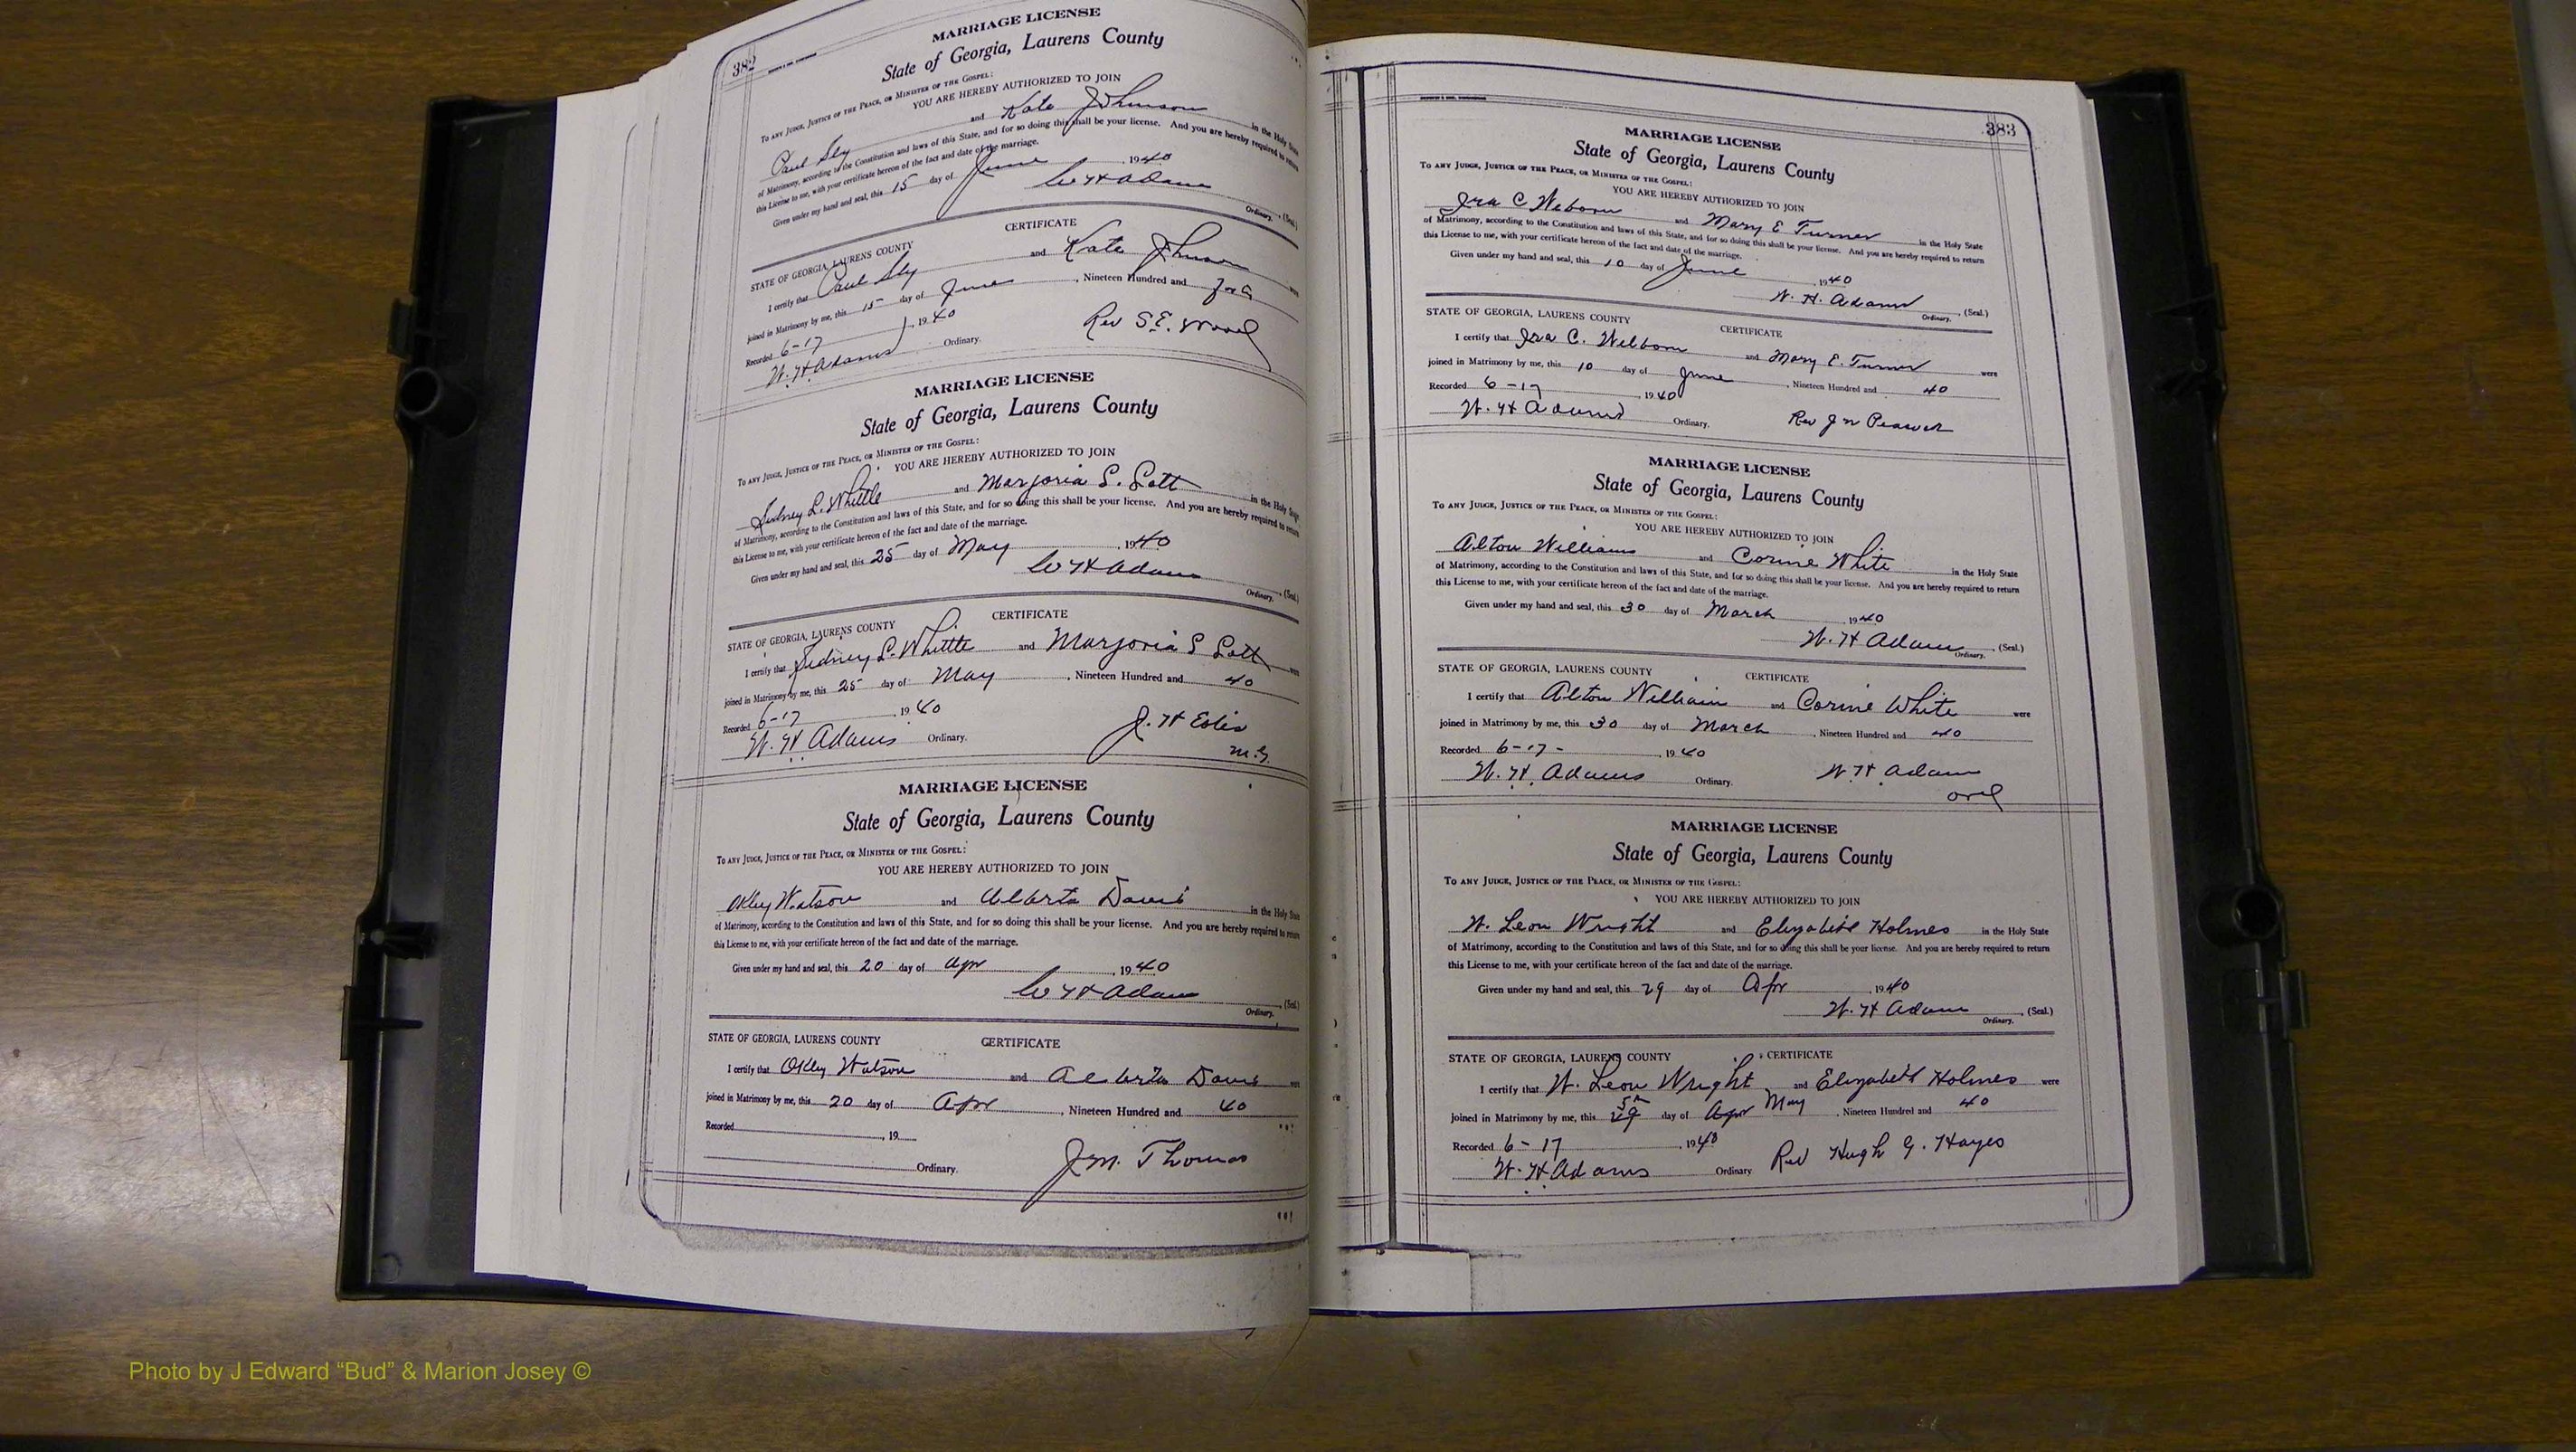 382
MARRIAGE LICENSE
State of Georgia, Laurens County
To any Judge, Justice of the Peace, or Minister of the Gospel:
YOU ARE HEREBY AUTHORIZED TO JOIN
Paul Sly and Kate Johnson in the Holy State
of Matrimony, according to the Constitution and laws of this State, and for so doing this shall be your license. And you are hereby required to return
this License to me, with your certificate hereon of the fact and date of the marriage.
Given under my hand and seal, this 15 day of June, 1940
W H Adams (Seal)
Ordinary.
CERTIFICATE
STATE OF GEORGIA, LAURENS COUNTY
I certify that Paul Sly and Kate Johnson were
joined in Matrimony by me, this 15 day of June, Nineteen Hundred and
Recorded 6-17, 1940
W. H Adams Ordinary. Rev S. E. Wood
MARRIAGE LICENSE
State of Georgia, Laurens County
To any Judge, Justice of the Peace, or Minister of the Gospel:
YOU ARE HEREBY AUTHORIZED TO JOIN
Sidney L. Whittle and Marjoria S. Lott in the Holy State
of Matrimony, according to the Constitution and laws of this State, and for so doing this shall be your license. And you are hereby required to return
this License to me, with your certificate hereon of the fact and date of the marriage.
Given under my hand and seal, this 25 day of May, 1940
W H Adams (Seal)
Ordinary.
CERTIFICATE
STATE OF GEORGIA, LAURENS COUNTY
I certify that Sidney L. Whittle and Marjoria S Lott were
joined in Matrimony by me, this 25 day of May, Nineteen Hundred and 40
Recorded 6-17, 1940
W. H Adams Ordinary. J. H
MARRIAGE LICENSE
State of Georgia, Laurens County
To any Judge, Justice of the Peace, or Minister of the Gospel:
YOU ARE HEREBY AUTHORIZED TO JOIN
Okley Watson and Alberta Davis in the Holy State
of Matrimony, according to the Constitution and laws of this State, and for so doing this shall be your license. And you are hereby required to return
this License to me, with your certificate hereon of the fact and date of the marriage.
Given under my hand and seal, this 20 day of Apr, 1940
W H Adams (Seal)
Ordinary.
STATE OF GEORGIA, LAURENS COUNTY CERTIFICATE
I certify that Okley Watson and Alberta Davis were
joined in Matrimony by me, this 20 day of Apr, Nineteen Hundred and 40
Recorded , 19
Ordinary. J. M. Thomas
383
MARRIAGE LICENSE
State of Georgia, Laurens County
To any Judge, Justice of the Peace, or Minister of the Gospel:
YOU ARE HEREBY AUTHORIZED TO JOIN
Ira C Weborn and Mary E Turner in the Holy State
of Matrimony, according to the Constitution and laws of this State, and for so doing this shall be your license. And you are hereby required to return
this License to me, with your certificate hereon of the fact and date of the marriage.
Given under my hand and seal, this 10 day of June, 1940
W. H. Adams (Seal.)
Ordinary.
STATE OF GEORGIA, LAURENS COUNTY CERTIFICATE
I certify that Ira C. Welborn and Mary E. Turner were
joined in Matrimony by me, this 10 day of June, Nineteen Hundred and 40
Recorded 6-17, 1940
W. H Adams Ordinary. Rev J N
MARRIAGE LICENSE
State of Georgia, Laurens County
To any Judge, Justice of the Peace, or Minister of the Gospel:
YOU ARE HEREBY AUTHORIZED TO JOIN
Alton Williams and Corine White in the Holy State
of Matrimony, according to the Constitution and laws of this State, and for so doing this shall be your license. And you are hereby required to return
this License to me, with your certificate hereon of the fact and date of the marriage.
Given under my hand and seal, this 30 day of March, 1940
W. H Adams (Seal.)
Ordinary.
STATE OF GEORGIA, LAURENS COUNTY CERTIFICATE
I certify that Alton William and Corine White were
joined in Matrimony by me, this 30 day of March, Nineteen Hundred and 40
Recorded 6-17-, 1940
W. H. Adams Ordinary. W. H Adams
Ord
MARRIAGE LICENSE
State of Georgia, Laurens County
To any Judge, Justice of the Peace, or Minister of the Gospel:
YOU ARE HEREBY AUTHORIZED TO JOIN
W. Leon Wright and Elizabeth Holmes in the Holy State
of Matrimony, according to the Constitution and laws of this State, and for so doing this shall be your license. And you are hereby required to return
this License to me, with your certificate hereon of the fact and date of the marriage.
Given under my hand and seal, this 29 day of Apr, 1940
W. H Adams (Seal.)
Ordinary.
STATE OF GEORGIA, LAURENS COUNTY CERTIFICATE
I certify that W. Leon Wright and Elizabeth Holmes were
joined in Matrimony by me, this 29 5th day of Apr May, Nineteen Hundred and 40
Recorded 6-17, 1940
W. H. Adams Ordinary Rev Hugh G. Hayes
Photo by J Edward “Bud” & Marion Josey ©